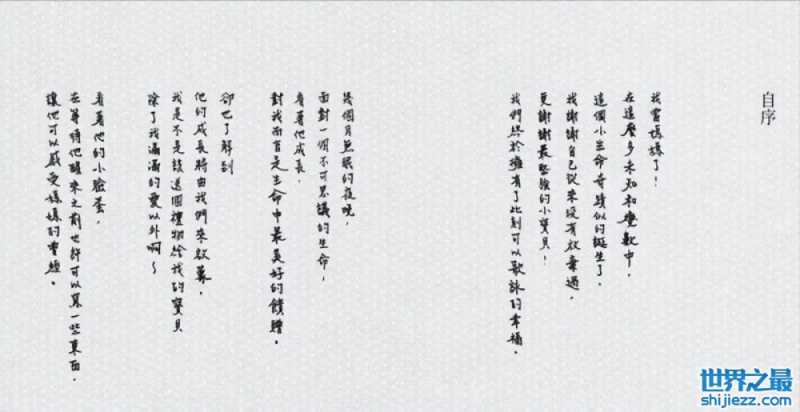 自序
我當媽媽了！
在這麼多未知和變數中，
這個小生命奇蹟似的誕生了。
我謝謝自己從來沒有放棄過，
更謝謝最堅強的小寶貝！
我們終於擁有了此刻可以歌詠的幸福。
幾個月無眠的夜晚，
面對一個不可思議的生命，
看著他成長，
對我而言是生命中最美好的饋贈。
卻也了解到
他的成長將由我們來啟蒙，
我是不是該送個禮物給我的寶貝
除了我滿滿的愛以外啊～
看著他的小臉蛋，
在等待他醒來之前也許可以寫一些東西，
讓他可以感受媽媽的
世界之最
shijiezz.com